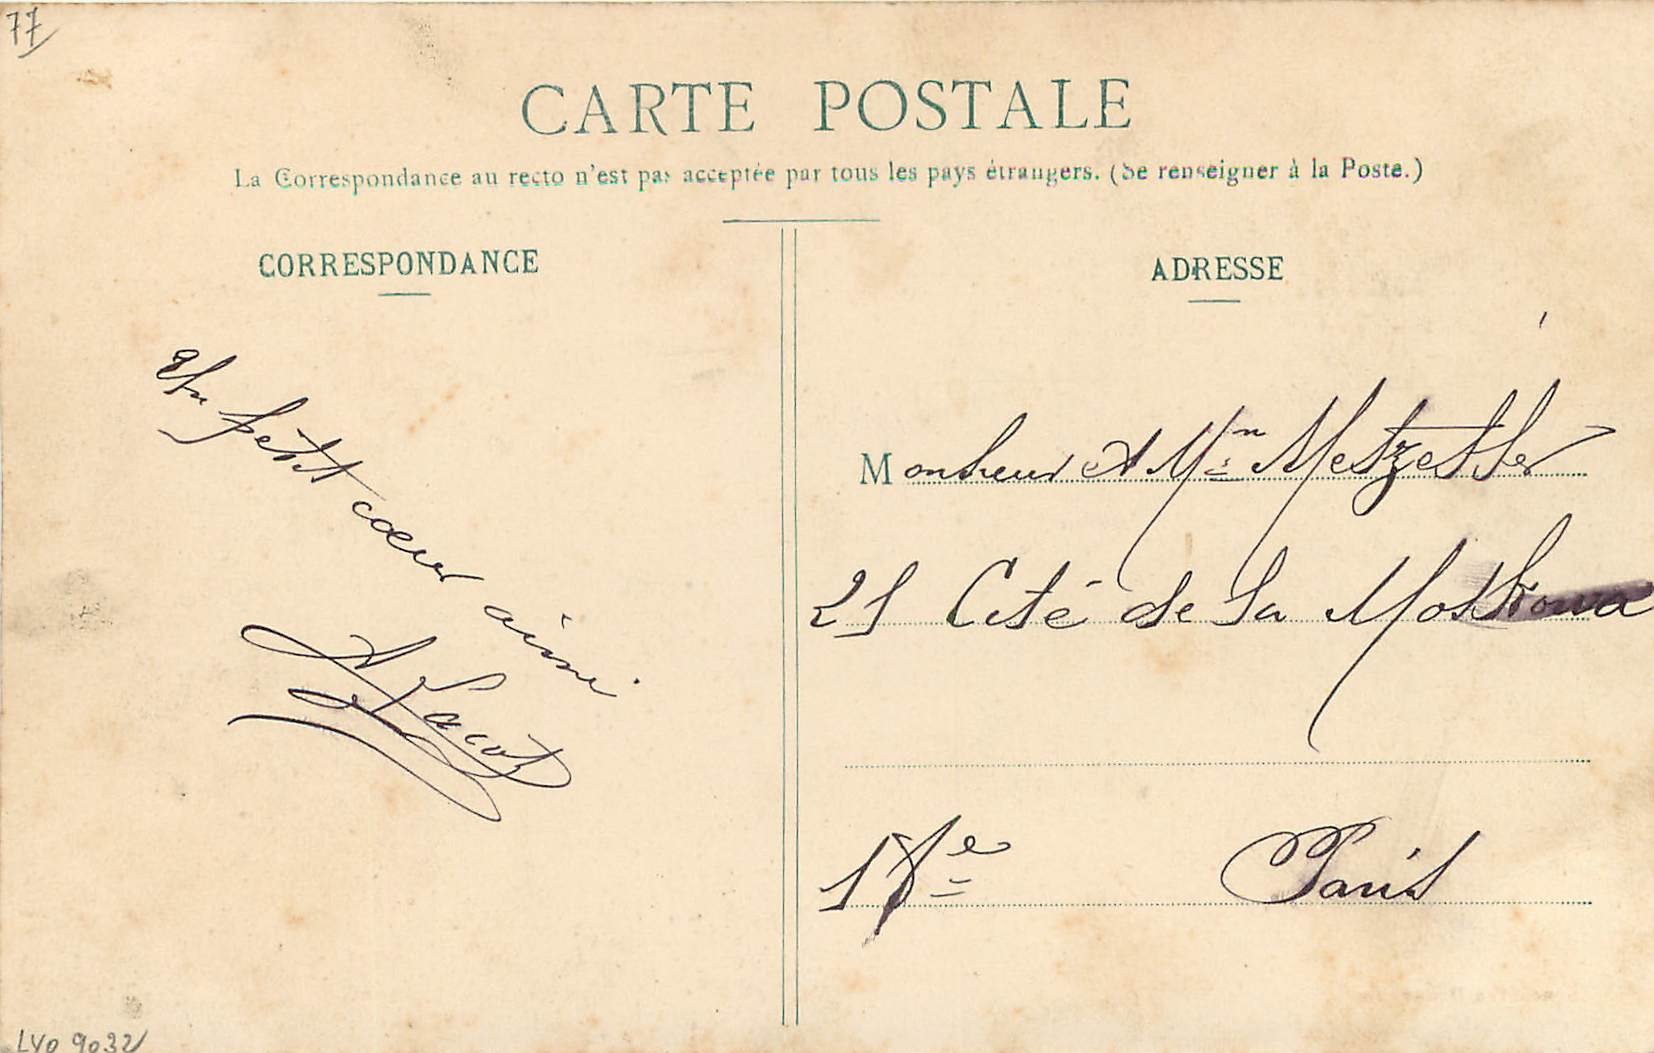 77
CARTE POSTALE
La Correspondance au recto n'est pas acceptée par tous les pays étrangers. (Se renseigner à la Poste.)
CORRESPONDANCE
petit cœur aimé
A Lacot
ADRESSE
Monsieur et Mme Metzetter
21 Cité de la Moskowa
18e Paris
LYO 9032